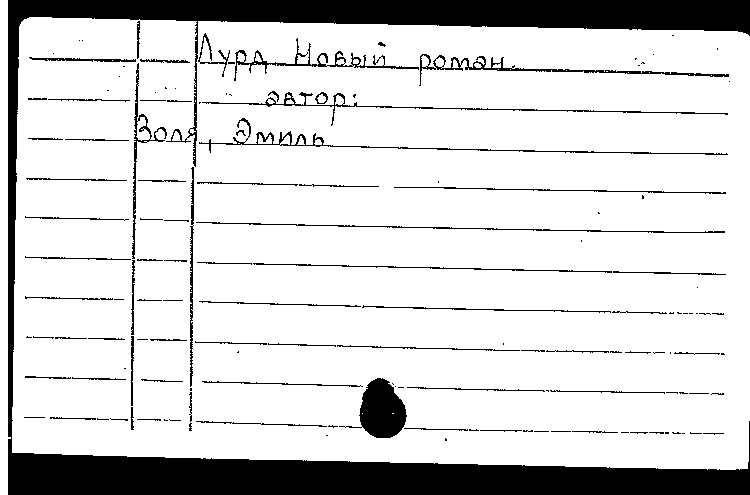 Лурд Новый роман.
автор:
Золя, Эмиль